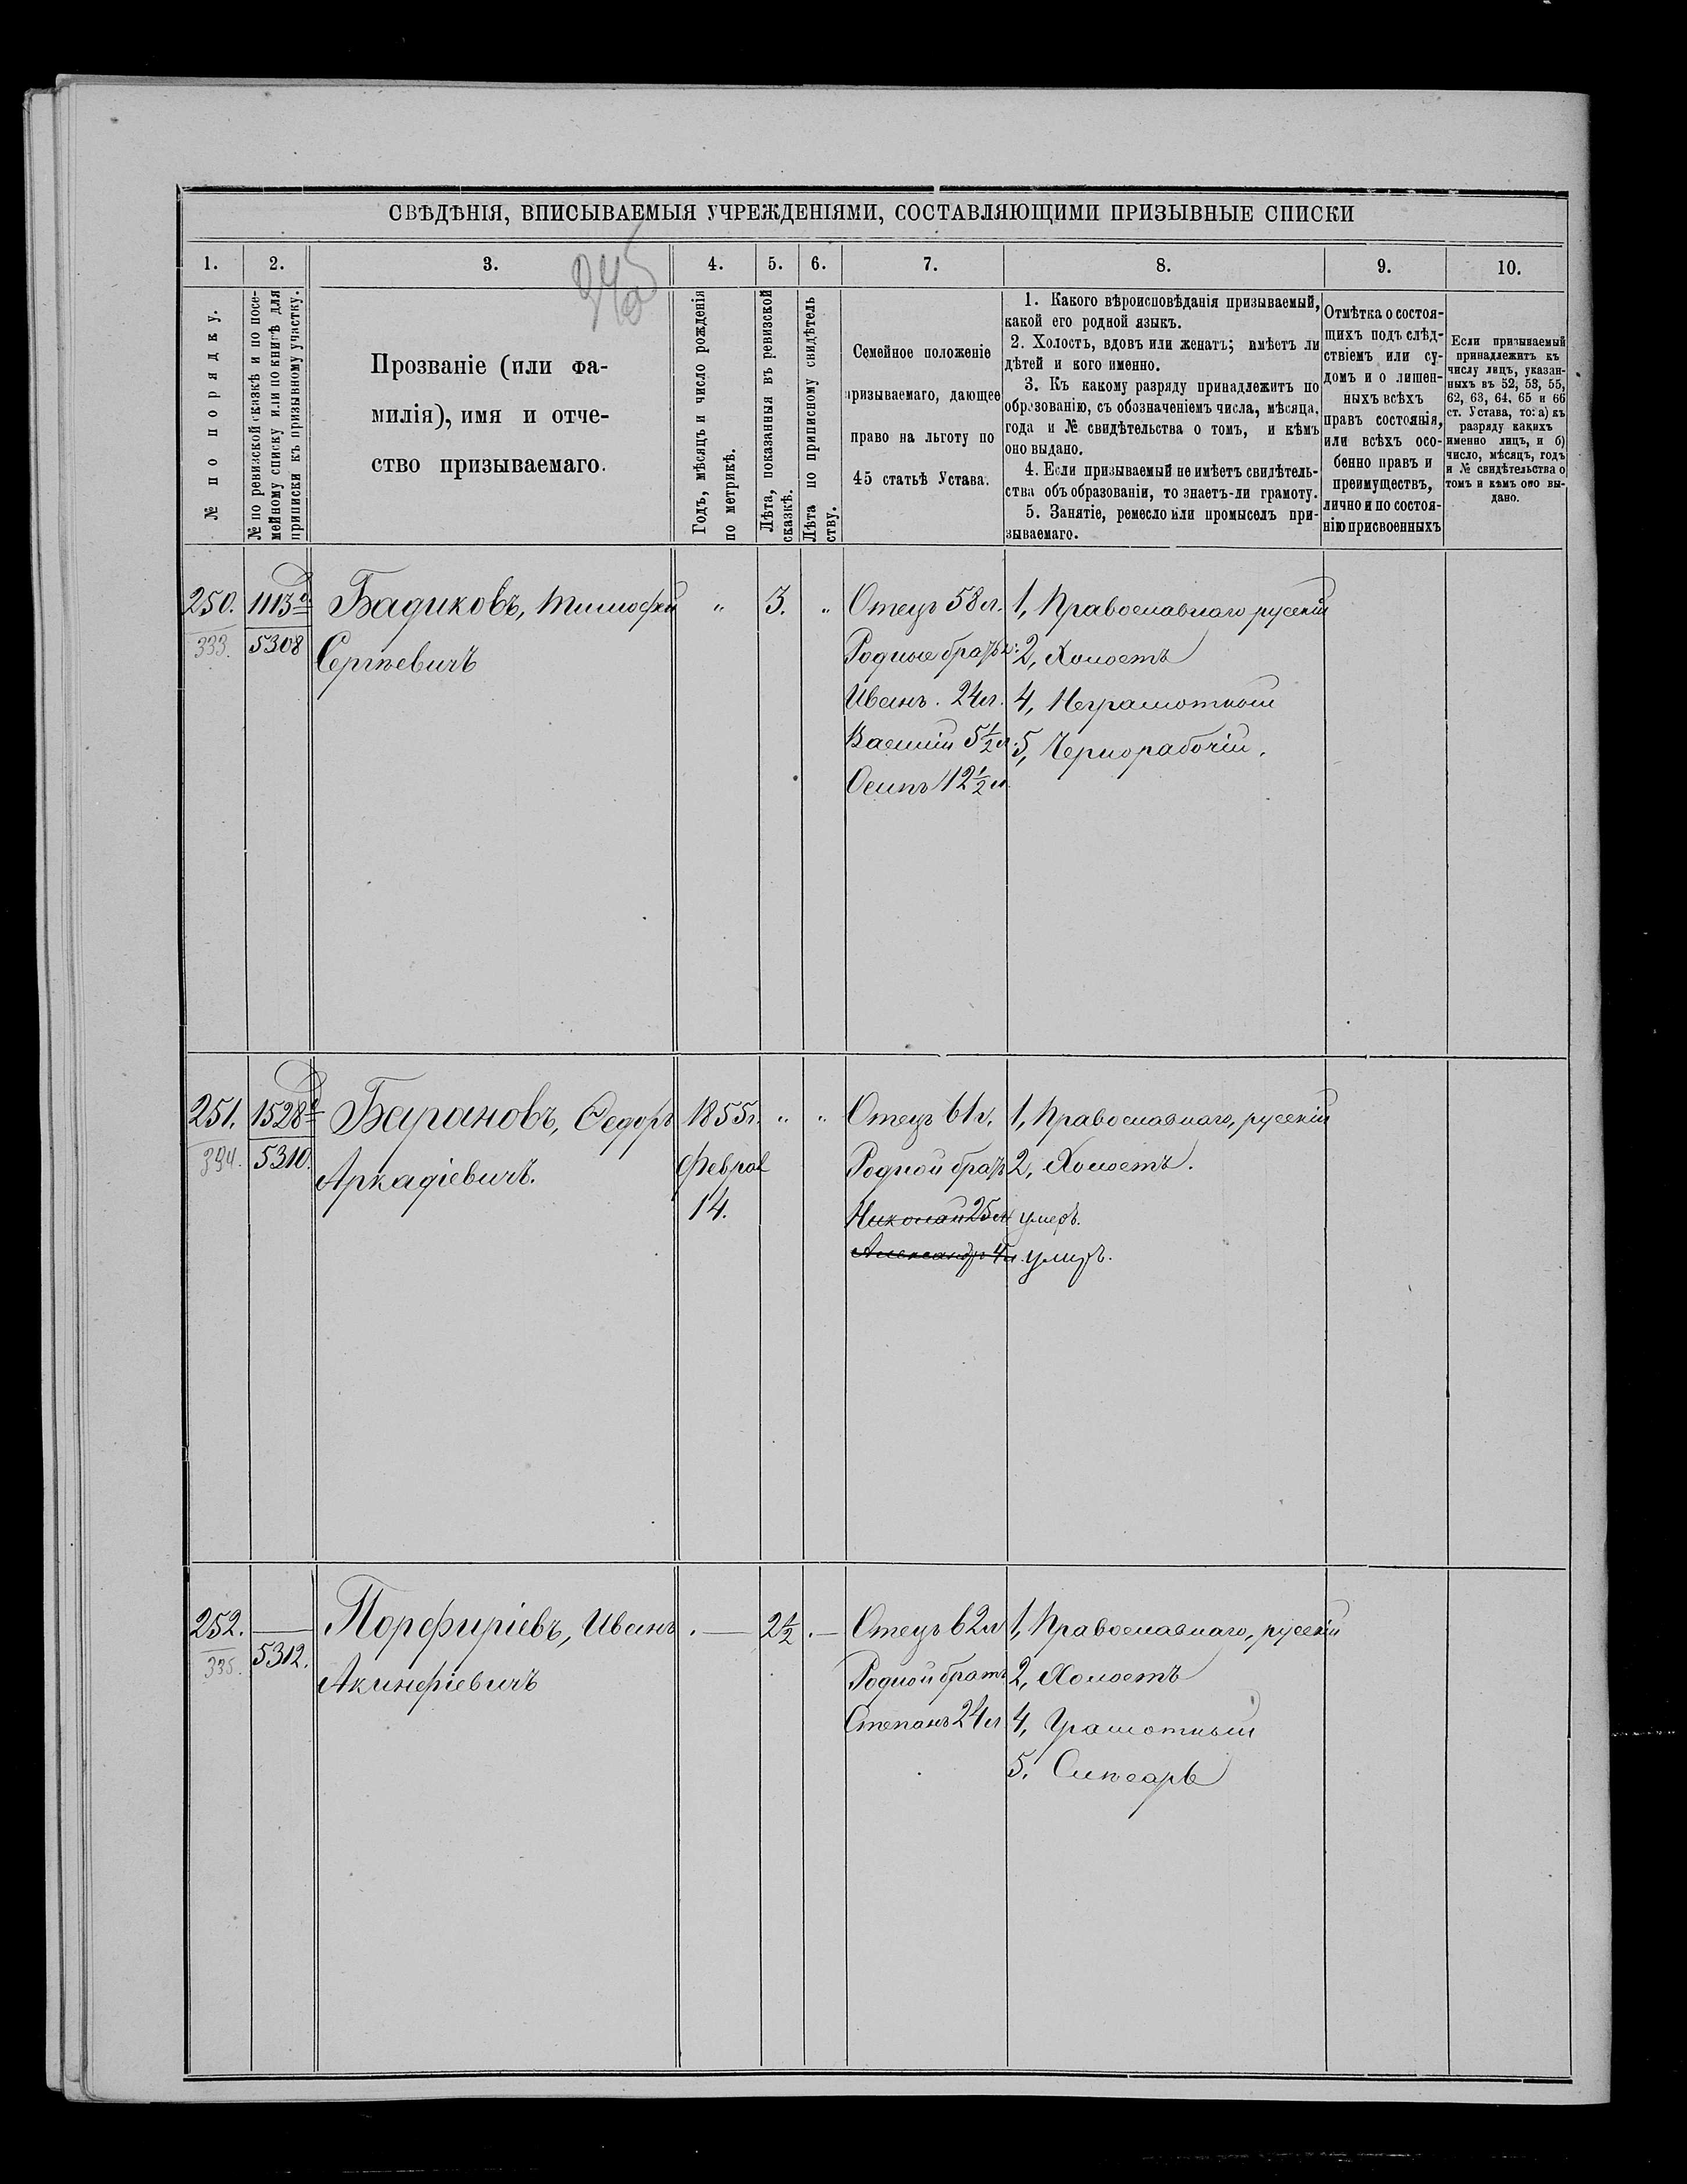 СВѢДѢНІЯ, ВПИСЫВАЕМЫЯ УЧРЕЖДЕНІЯМИ, СОСТАВЛЯЮЩИМИ ПРИЗЫВНЫЕ СПИСКИ
1. 2. 3. 4. 5. 6. 7. 8. 9. 10.
№ по порядку.
№ по ревизской сказкѣ и по посе-
мейному списку или по книгѣ для
приписки къ призывному участку.
Прозваніе (или фа-
милія), имя и отче-
ство призываемаго.
Годъ, мѣсяцъ и число рожденія
по метрикѣ.
Лѣта, показанныя въ ревизской
сказкѣ.
Лѣта по приписному свидѣтель
ству.
Семейное положеніе
призываемаго, дающее
право на льготу по
45 статьѣ Устава.
1. Какого вѣроисповѣданія призываемый,
какой его родной языкъ.
2. Холостъ, вдовъ или женатъ; имѣетъ ли
дѣтей и кого именно.
3. Къ какому разряду принадлежитъ по
образованію, съ обозначеніемъ числа, мѣсяца,
года и № свидѣтельства о томъ, и кѣмъ
оно выдано.
4. Если призываемый не имѣетъ свидѣтель-
ства объ образованіи, то знаетъ-ли грамоту.
5. Занятіе, ремесло или промыселъ при-
зываемаго.
Отмѣтка о состоя-
щихъ подъ слѣд-
ствіемъ или су-
домъ и о лишен-
ныхъ всѣхъ
правъ состоянія,
или всѣхъ осо-
бенно правъ и
преимуществъ,
лично и по состоя-
нію присвоенныхъ
Если призываемый
принадлежитъ къ
числу лицъ, указан-
ныхъ въ 52, 53, 55,
62, 63, 64, 65 и 66
ст. Устава, то: а) къ
разряду какихъ
именно лицъ, и б)
число, мѣсяцъ, годъ
и № свидѣтельства о
томъ и кѣмъ оно вы-
дано.
250. 1113 Бадиковъ, Тимофей " 3. " Отецъ 58 л. 1, Православнаго русскій
333. 5308 Сергѣевичъ Родные братья: 2, Холостъ
Иванъ. 24 л. 4, Неграмотный
Василій 5½ л. 5, Чернорабочій.
Осипъ 12½ л.
251. 1528 Барановъ, Ѳедоръ 1855 г. " " Отецъ 61 г. 1, Православнаго, русскій
334. 5310. Аркадіевичъ. Феврал Родной братъ 2, Холостъ.
14. Николай 25 л. умеръ.
Александръ 4 л. умеръ.
252. — Порфиріевъ, Иванъ — 2½ — Отецъ 62 л 1, Православнаго, русскій
335. 5312. Акинфіевичъ Родной братъ 2, Холостъ
Степанъ 24 л 4, Грамотный
5. Слѣсарь